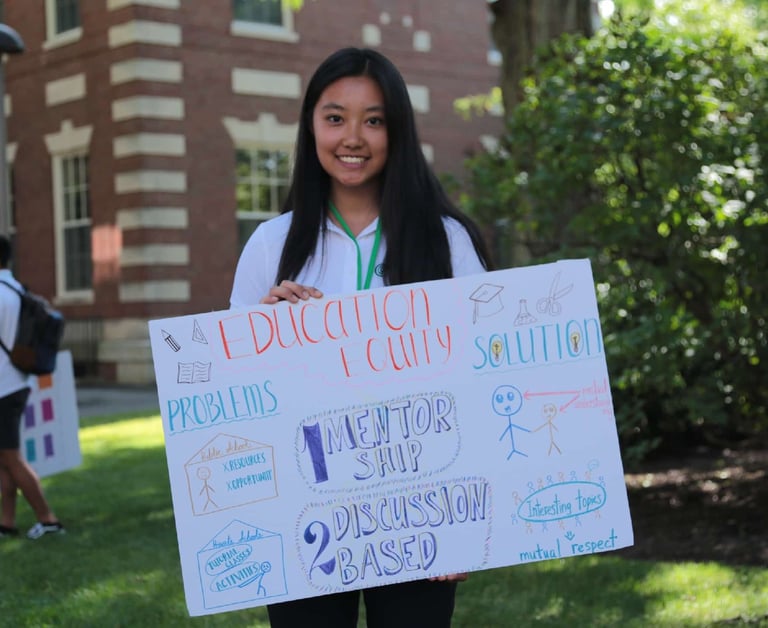 EDUCATION
EQUITY
PROBLEMS
Public Schools
X RESOURCES
X OPPORTUNIT
Private Schools
TUTORING
CLASSES
ACTIVITIES
1 MENTOR
SHIP
2 DISCUSSION
BASED
SOLUTION
mutual
understanding
Interesting topics
mutual respect